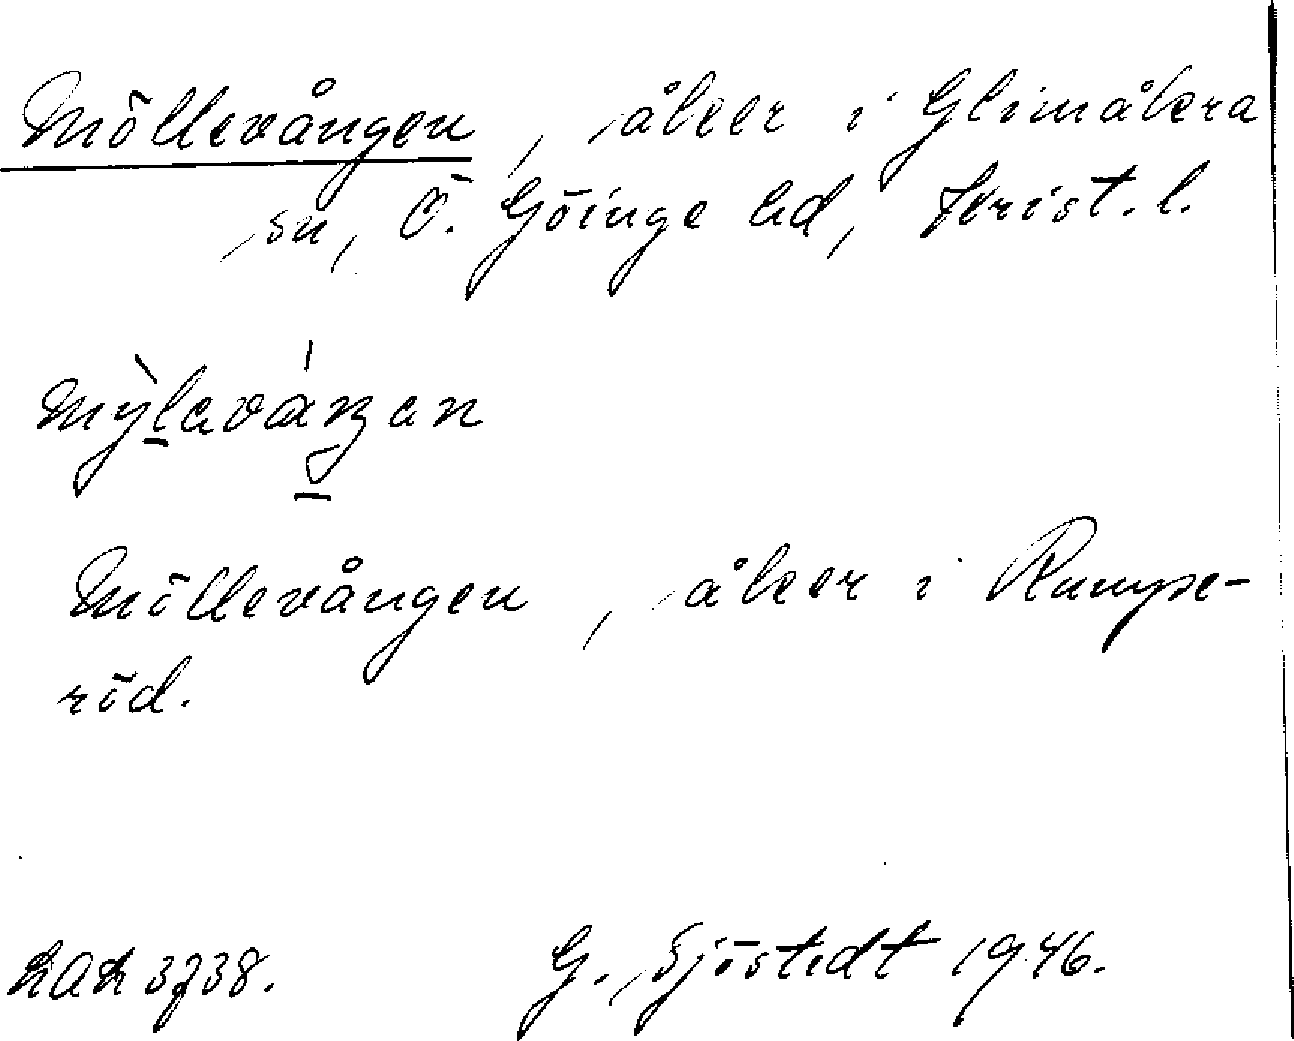 Möllevången, åker i Glimåkra
sn, Ö. Göinge hd, Krist. l.
Möllevången, åker i Rumpe-
röd.
3738. G. Sjöstedt 1946.